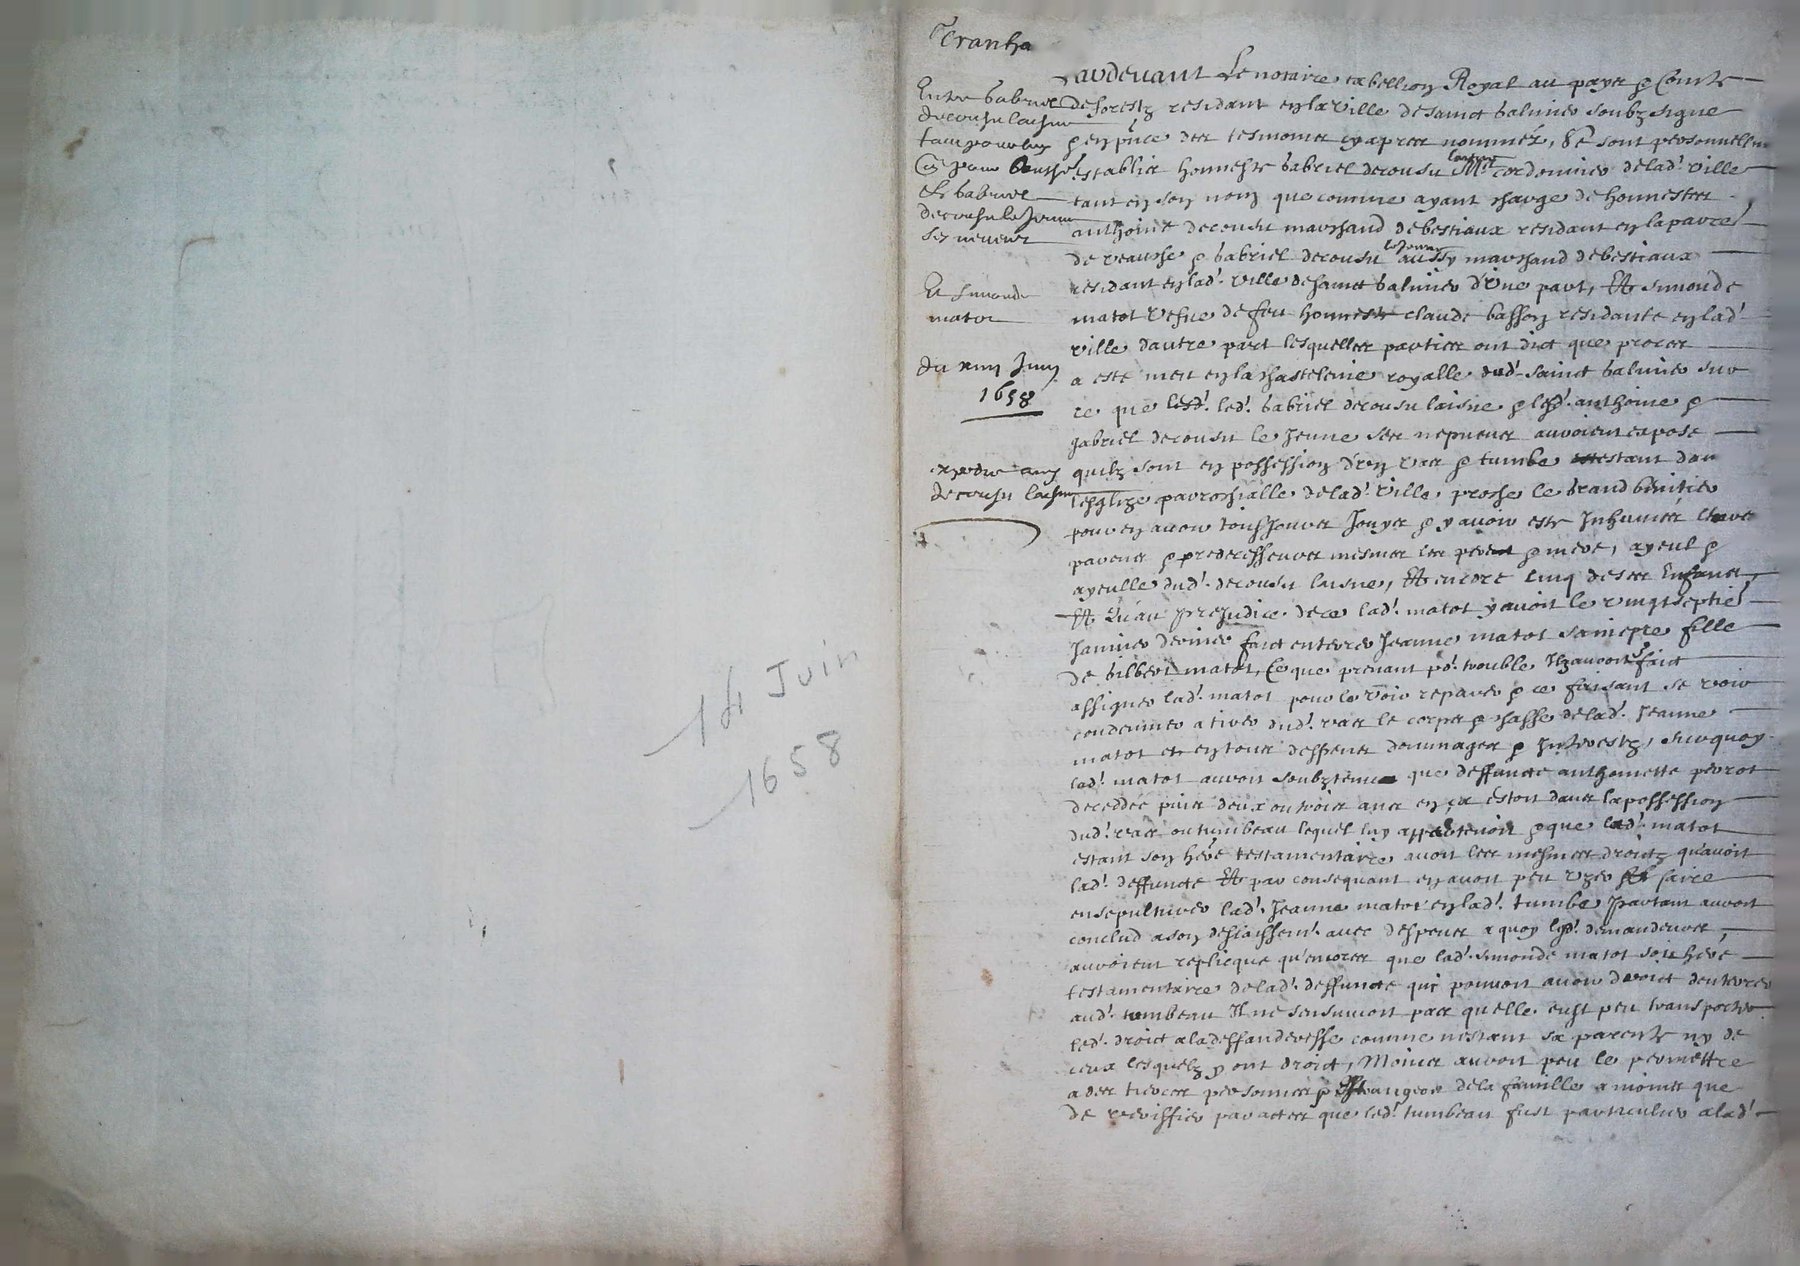 14 Juin
1658
Entre Gabriel
decousu laisne
tant pour luy
Et Gabriel
decousu le Jeune
ses neveux
Et Simonde
matot
du xiiii Juin
1658
decousu laisne
Pardevant Le notaire tabellion Royal au payes & Comte
de forestz residant en la Ville de Sainct Galmier soubzsigne
& en pnce des tesmoins cy apres nommez, Se sont personnellem
establis honneste Gabriel decousu laisne Me cordonnier de lad. Ville
tant en son nom que comme ayant charge de honnestes
anthoine decousu marchand de bestiaux residant en la parre
de veauche & Gabriel decousu le Jeune aussy marchand de bestiaux
residant en lad. ville de Sainct Galmier d'vne part, Et Simonde
matot vefue de feu honneste claude basson residante en lad.
ville dautre part lesquelles parties ont dict que proces
a este meu en la chastelenie royalle dud. Sainct Galmier sur
ce que led. Gabriel decousu laisne & led. anthoine &
gabriel decousu le Jeune ses nepueux auroient expose
quilz sont en possession d'vn vas & tumbe estant dans
lesglize parrochialle de lad. Ville proche le Grand benitier
pour en auoir tousjours Jouyr & y auoir este Inhumes leurs
parens & predecesseurs mesmes les pere & mere, ayeul &
ayeulle dud. decousu laisne, Et encore cinq de ses Enfans,
Et Qu'au prejudice de ce lad. matot y auoit le vingtseptie
Janvier dernier faict enterrer Jeanne matot sa niepce fille
de Gilbert matot, Ce que prenant po. trouble Ilz auroient faict
assigner lad. matot pour le voir reparer & ce faisant se voir
condemner a tirer dud. vas le corps & chasse de lad. Jeanne
matot et en tous despens dommages & Interestz, Surquoy
lad. matot auroit soubztenu que deffuncte anthoinette perrot
decedee puis deux ou trois ans en ça estoit dans la possession
dud. vas ou tumbeau lequel luy appartenoit & que lad. matot
estant son here testamentaire auoit les mesmes droictz qu'auoit
lad. deffuncte Et par consequant en auoit peu vzer faire
ensepulturer lad. Jeanne matot en lad. tumbe partant auroit
conclud a son deslaissem. auec despens a quoy lesd. demandeurs
auroient replicque qu'encores que lad. Simonde matot soit here
testamentaire de lad. deffuncte qui pouuoit auoir droict denterrer
aud. tombeau Il ne sensuiuoit pas quelle eust peu transporter
led. droict a la deffanderesse comme nestant sa parente ny de
ceux lesquelz y ont droict, Moins auroit peu le permettre
a des tierces personnes & estrangeres de la famille a moins que
de veriffier par actes que led. tumbeau fust particulier a lad.